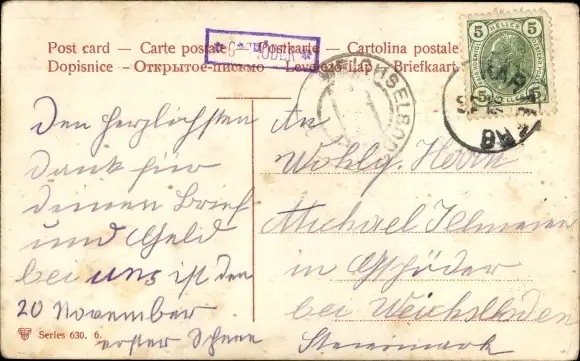 Post card — Carte postale — Postkarte — Cartolina postale
Dopisnice — Открытое-письмо — Levelező-Lap — Briefkaart
* GSCHÖDER *
WEICHSELBODEN
5 5
5 5
Den herzlichsten
Dank für
deinen Brief
und Geld
bei uns ist den
20 November
erster Schnee
An
Wohlg. Herrn
Michael
in Gschöder
bei Weichselboden
Steiermark
Series 630. 6.